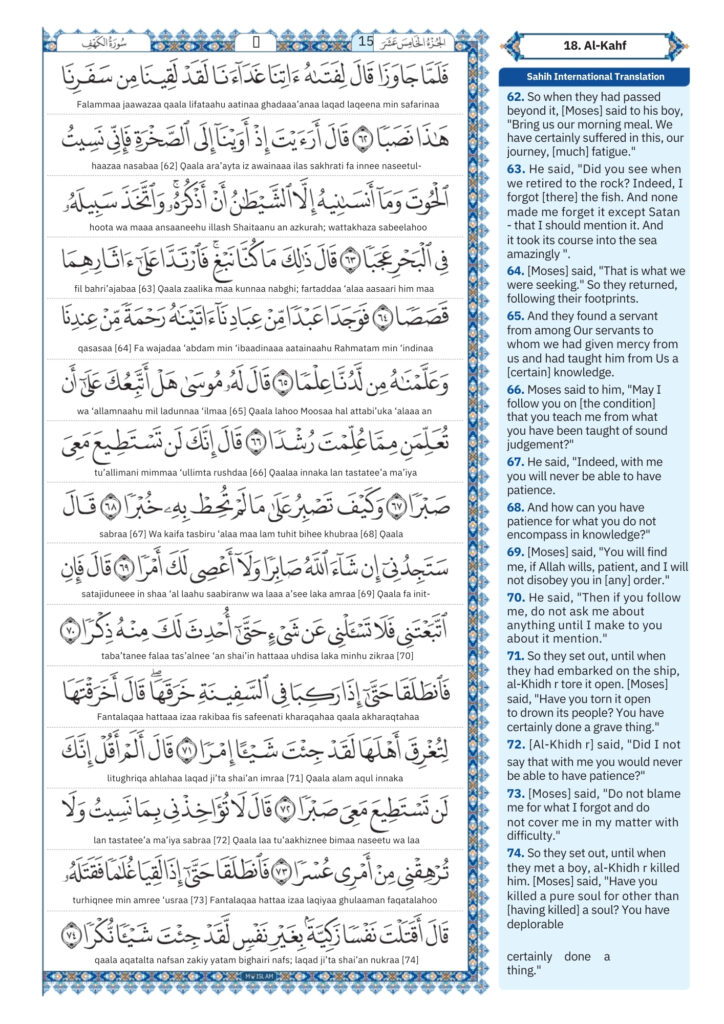 سُورَةُ الكَهْفِ
15 الجُزْءُ الخَامِسَ عَشَرَ
فَلَمَّا جَاوَزَا قَالَ لِفَتَىٰهُ ءَاتِنَا غَدَآءَنَا لَقَدْ لَقِينَا مِن سَفَرِنَا
Falammaa jaawazaa qaala lifataahu aatinaa ghadaaa'anaa laqad laqeena min safarinaa
هَٰذَا نَصَبًا ٦٢ قَالَ أَرَءَيْتَ إِذْ أَوَيْنَآ إِلَى ٱلصَّخْرَةِ فَإِنِّى نَسِيتُ
haazaa nasabaa [62] Qaala ara'ayta iz awainaaa ilas sakhrati fa innee naseetul-
ٱلْحُوتَ وَمَآ أَنسَىٰنِيهُ إِلَّا ٱلشَّيْطَٰنُ أَنْ أَذْكُرَهُۥ ۚ وَٱتَّخَذَ سَبِيلَهُۥ
hoota wa maaa ansaaneehu illash Shaitaanu an azkurah; wattakhaza sabeelahoo
فِى ٱلْبَحْرِ عَجَبًا ٦٣ قَالَ ذَٰلِكَ مَا كُنَّا نَبْغِ ۚ فَٱرْتَدَّا عَلَىٰٓ ءَاثَارِهِمَا
fil bahri'ajabaa [63] Qaala zaalika maa kunnaa nabghi; fartaddaa 'alaa aasaari him maa
قَصَصًا ٦٤ فَوَجَدَا عَبْدًا مِّنْ عِبَادِنَآ ءَاتَيْنَٰهُ رَحْمَةً مِّنْ عِندِنَا
qasasaa [64] Fa wajadaa 'abdam min 'ibaadinaaa aatainaahu Rahmatam min 'indinaa
وَعَلَّمْنَٰهُ مِن لَّدُنَّا عِلْمًا ٦٥ قَالَ لَهُۥ مُوسَىٰ هَلْ أَتَّبِعُكَ عَلَىٰٓ أَن
wa 'allamnaahu mil ladunnaa 'ilmaa [65] Qaala lahoo Moosaa hal attabi'uka 'alaaa an
تُعَلِّمَنِ مِمَّا عُلِّمْتَ رُشْدًا ٦٦ قَالَ إِنَّكَ لَن تَسْتَطِيعَ مَعِىَ
tu'allimani mimmaa 'ullimta rushdaa [66] Qaalaa innaka lan tastatee'a ma'iya
صَبْرًا ٦٧ وَكَيْفَ تَصْبِرُ عَلَىٰ مَا لَمْ تُحِطْ بِهِۦ خُبْرًا ٦٨ قَالَ
sabraa [67] Wa kaifa tasbiru 'alaa maa lam tuhit bihee khubraa [68] Qaala
سَتَجِدُنِىٓ إِن شَآءَ ٱللَّهُ صَابِرًا وَلَآ أَعْصِى لَكَ أَمْرًا ٦٩ قَالَ فَإِنِ
satajiduneee in shaa 'al laahu saabiranw wa laaa a'see laka amraa [69] Qaala fa init-
ٱتَّبَعْتَنِى فَلَا تَسْـَٔلْنِى عَن شَىْءٍ حَتَّىٰٓ أُحْدِثَ لَكَ مِنْهُ ذِكْرًا ٧٠
taba'tanee falaa tas'alnee 'an shai'in hattaaa uhdisa laka minhu zikraa [70]
فَٱنطَلَقَا حَتَّىٰٓ إِذَا رَكِبَا فِى ٱلسَّفِينَةِ خَرَقَهَا ۖ قَالَ أَخَرَقْتَهَا
Fantalaqaa hattaaa izaa rakibaa fis safeenati kharaqahaa qaala akharaqtahaa
لِتُغْرِقَ أَهْلَهَا لَقَدْ جِئْتَ شَيْـًٔا إِمْرًا ٧١ قَالَ أَلَمْ أَقُلْ إِنَّكَ
litughriqa ahlahaa laqad ji'ta shai'an imraa [71] Qaala alam aqul innaka
لَن تَسْتَطِيعَ مَعِىَ صَبْرًا ٧٢ قَالَ لَا تُؤَاخِذْنِى بِمَا نَسِيتُ وَلَا
lan tastatee'a ma'iya sabraa [72] Qaala laa tu'aakhiznee bimaa naseetu wa laa
تُرْهِقْنِى مِنْ أَمْرِى عُسْرًا ٧٣ فَٱنطَلَقَا حَتَّىٰٓ إِذَا لَقِيَا غُلَٰمًا فَقَتَلَهُۥ
turhiqnee min amree 'usraa [73] Fantalaqaa hattaa izaa laqiyaa ghulaaman faqatalahoo
قَالَ أَقَتَلْتَ نَفْسًا زَكِيَّةًۢ بِغَيْرِ نَفْسٍ لَّقَدْ جِئْتَ شَيْـًٔا نُّكْرًا ٧٤
qaala aqatalta nafsan zakiy yatam bighairi nafs; laqad ji'ta shai'an nukraa [74]
MW ISLAM
18. Al-Kahf
Sahih International Translation
62. So when they had passed
beyond it, [Moses] said to his boy,
"Bring us our morning meal. We
have certainly suffered in this, our
journey, [much] fatigue."
63. He said, "Did you see when
we retired to the rock? Indeed, I
forgot [there] the fish. And none
made me forget it except Satan
- that I should mention it. And
it took its course into the sea
amazingly ".
64. [Moses] said, "That is what we
were seeking." So they returned,
following their footprints.
65. And they found a servant
from among Our servants to
whom we had given mercy from
us and had taught him from Us a
[certain] knowledge.
66. Moses said to him, "May I
follow you on [the condition]
that you teach me from what
you have been taught of sound
judgement?"
67. He said, "Indeed, with me
you will never be able to have
patience.
68. And how can you have
patience for what you do not
encompass in knowledge?"
69. [Moses] said, "You will find
me, if Allah wills, patient, and I will
not disobey you in [any] order."
70. He said, "Then if you follow
me, do not ask me about
anything until I make to you
about it mention."
71. So they set out, until when
they had embarked on the ship,
al-Khidh r tore it open. [Moses]
said, "Have you torn it open
to drown its people? You have
certainly done a grave thing."
72. [Al-Khidh r] said, "Did I not
say that with me you would never
be able to have patience?"
73. [Moses] said, "Do not blame
me for what I forgot and do
not cover me in my matter with
difficulty."
74. So they set out, until when
they met a boy, al-Khidh r killed
him. [Moses] said, "Have you
killed a pure soul for other than
[having killed] a soul? You have
deplorable
certainly done a
thing."